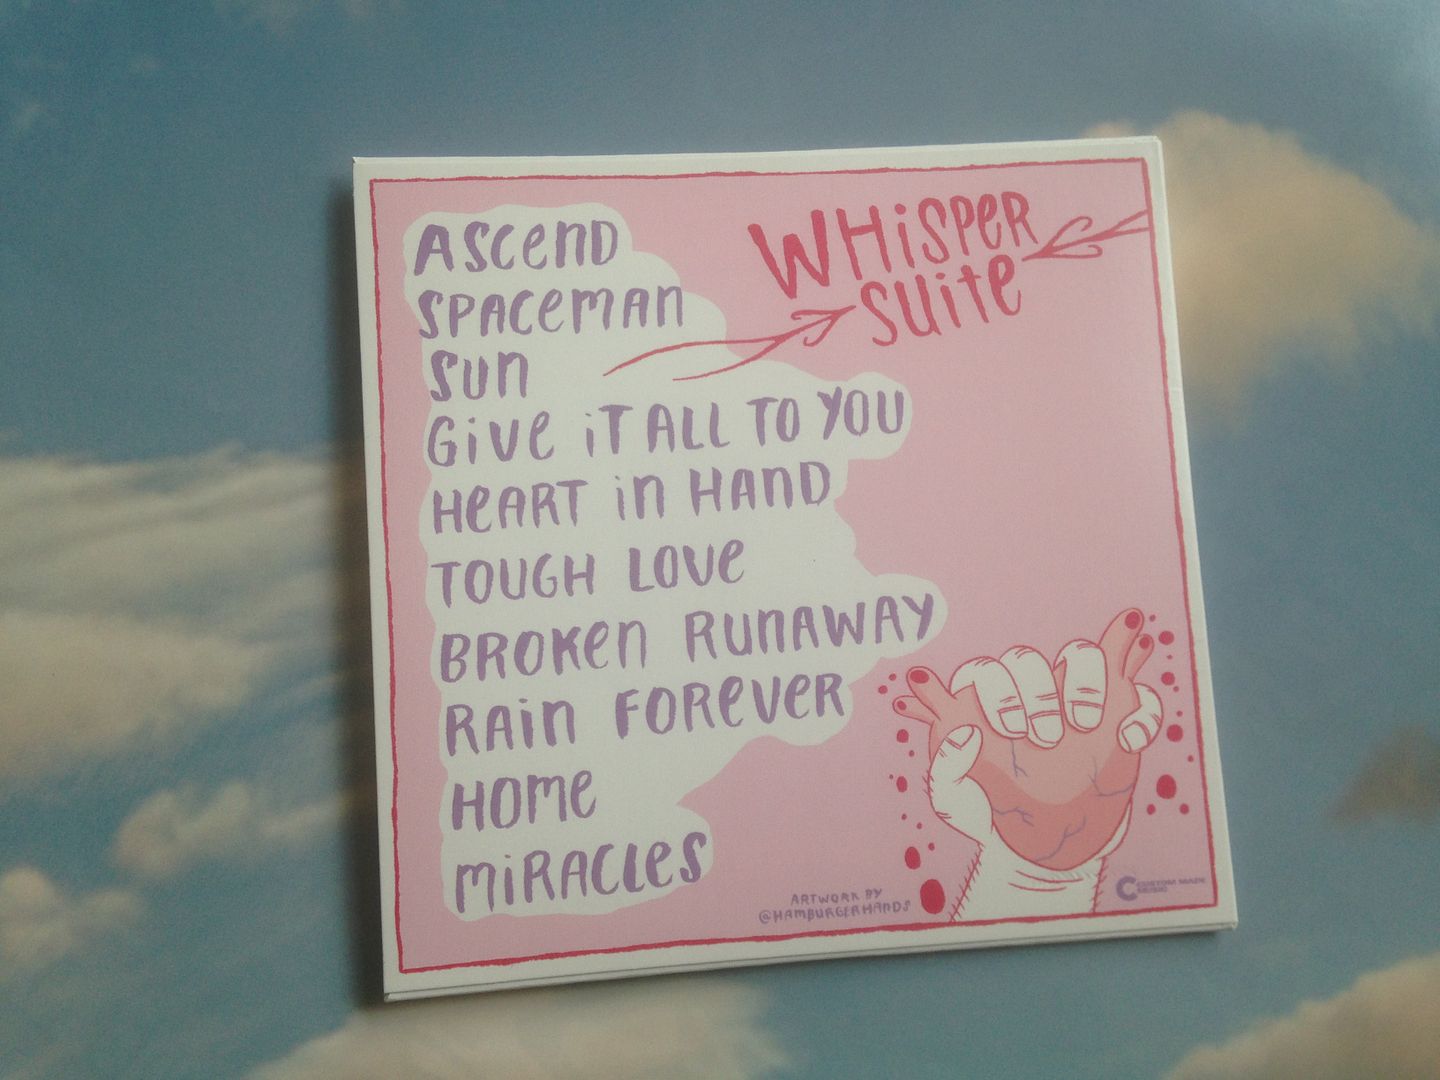 ASCEND
SPACEMAN
SUN
GIVE IT ALL TO YOU
HEART IN HAND
TOUGH LOVE
BROKEN RUNAWAY
RAIN FOREVER
HOME
MIRACLES
WHISPER
SUITE
ARTWORK BY
@HAMBURGERHANDS
CUSTOM MADE
MUSIC